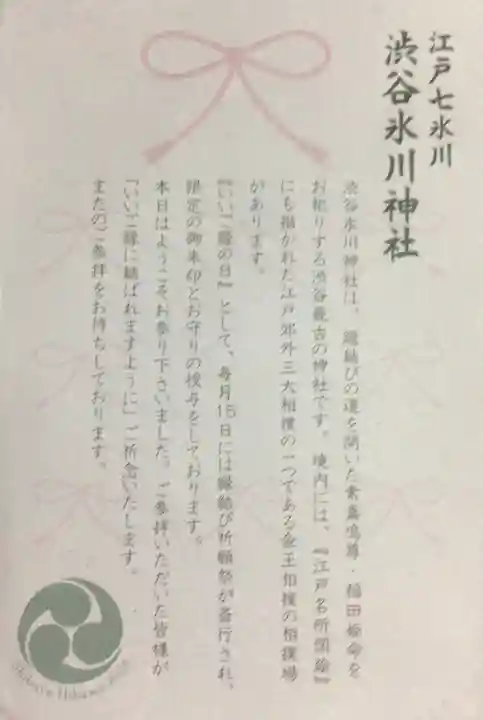 江戸七氷川
渋谷氷川神社
渋谷氷川神社は、縁結びの道を開いた素盞鳴尊・稲田姫命を
お祀りする渋谷最古の神社です。境内には、『江戸名所図絵』
にも描かれた江戸郊外三大相撲の一つである金王相撲の相撲場
があります。
『いいご縁の日』として、毎月15日には縁結び祈願祭が斎行され、
限定の御朱印とお守りの授与をしております。
本日はようこそお参り下さいました。ご参拝いただいた皆様が
「いいご縁に結ばれますように」ご祈念いたします。
またのご参拝をお待ちしております。
Shibuya Hikawa